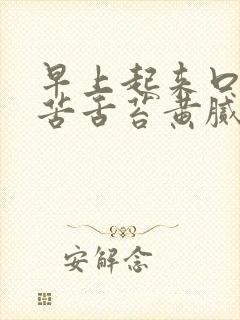 早上起来口
苦舌苔黄腻
安解念